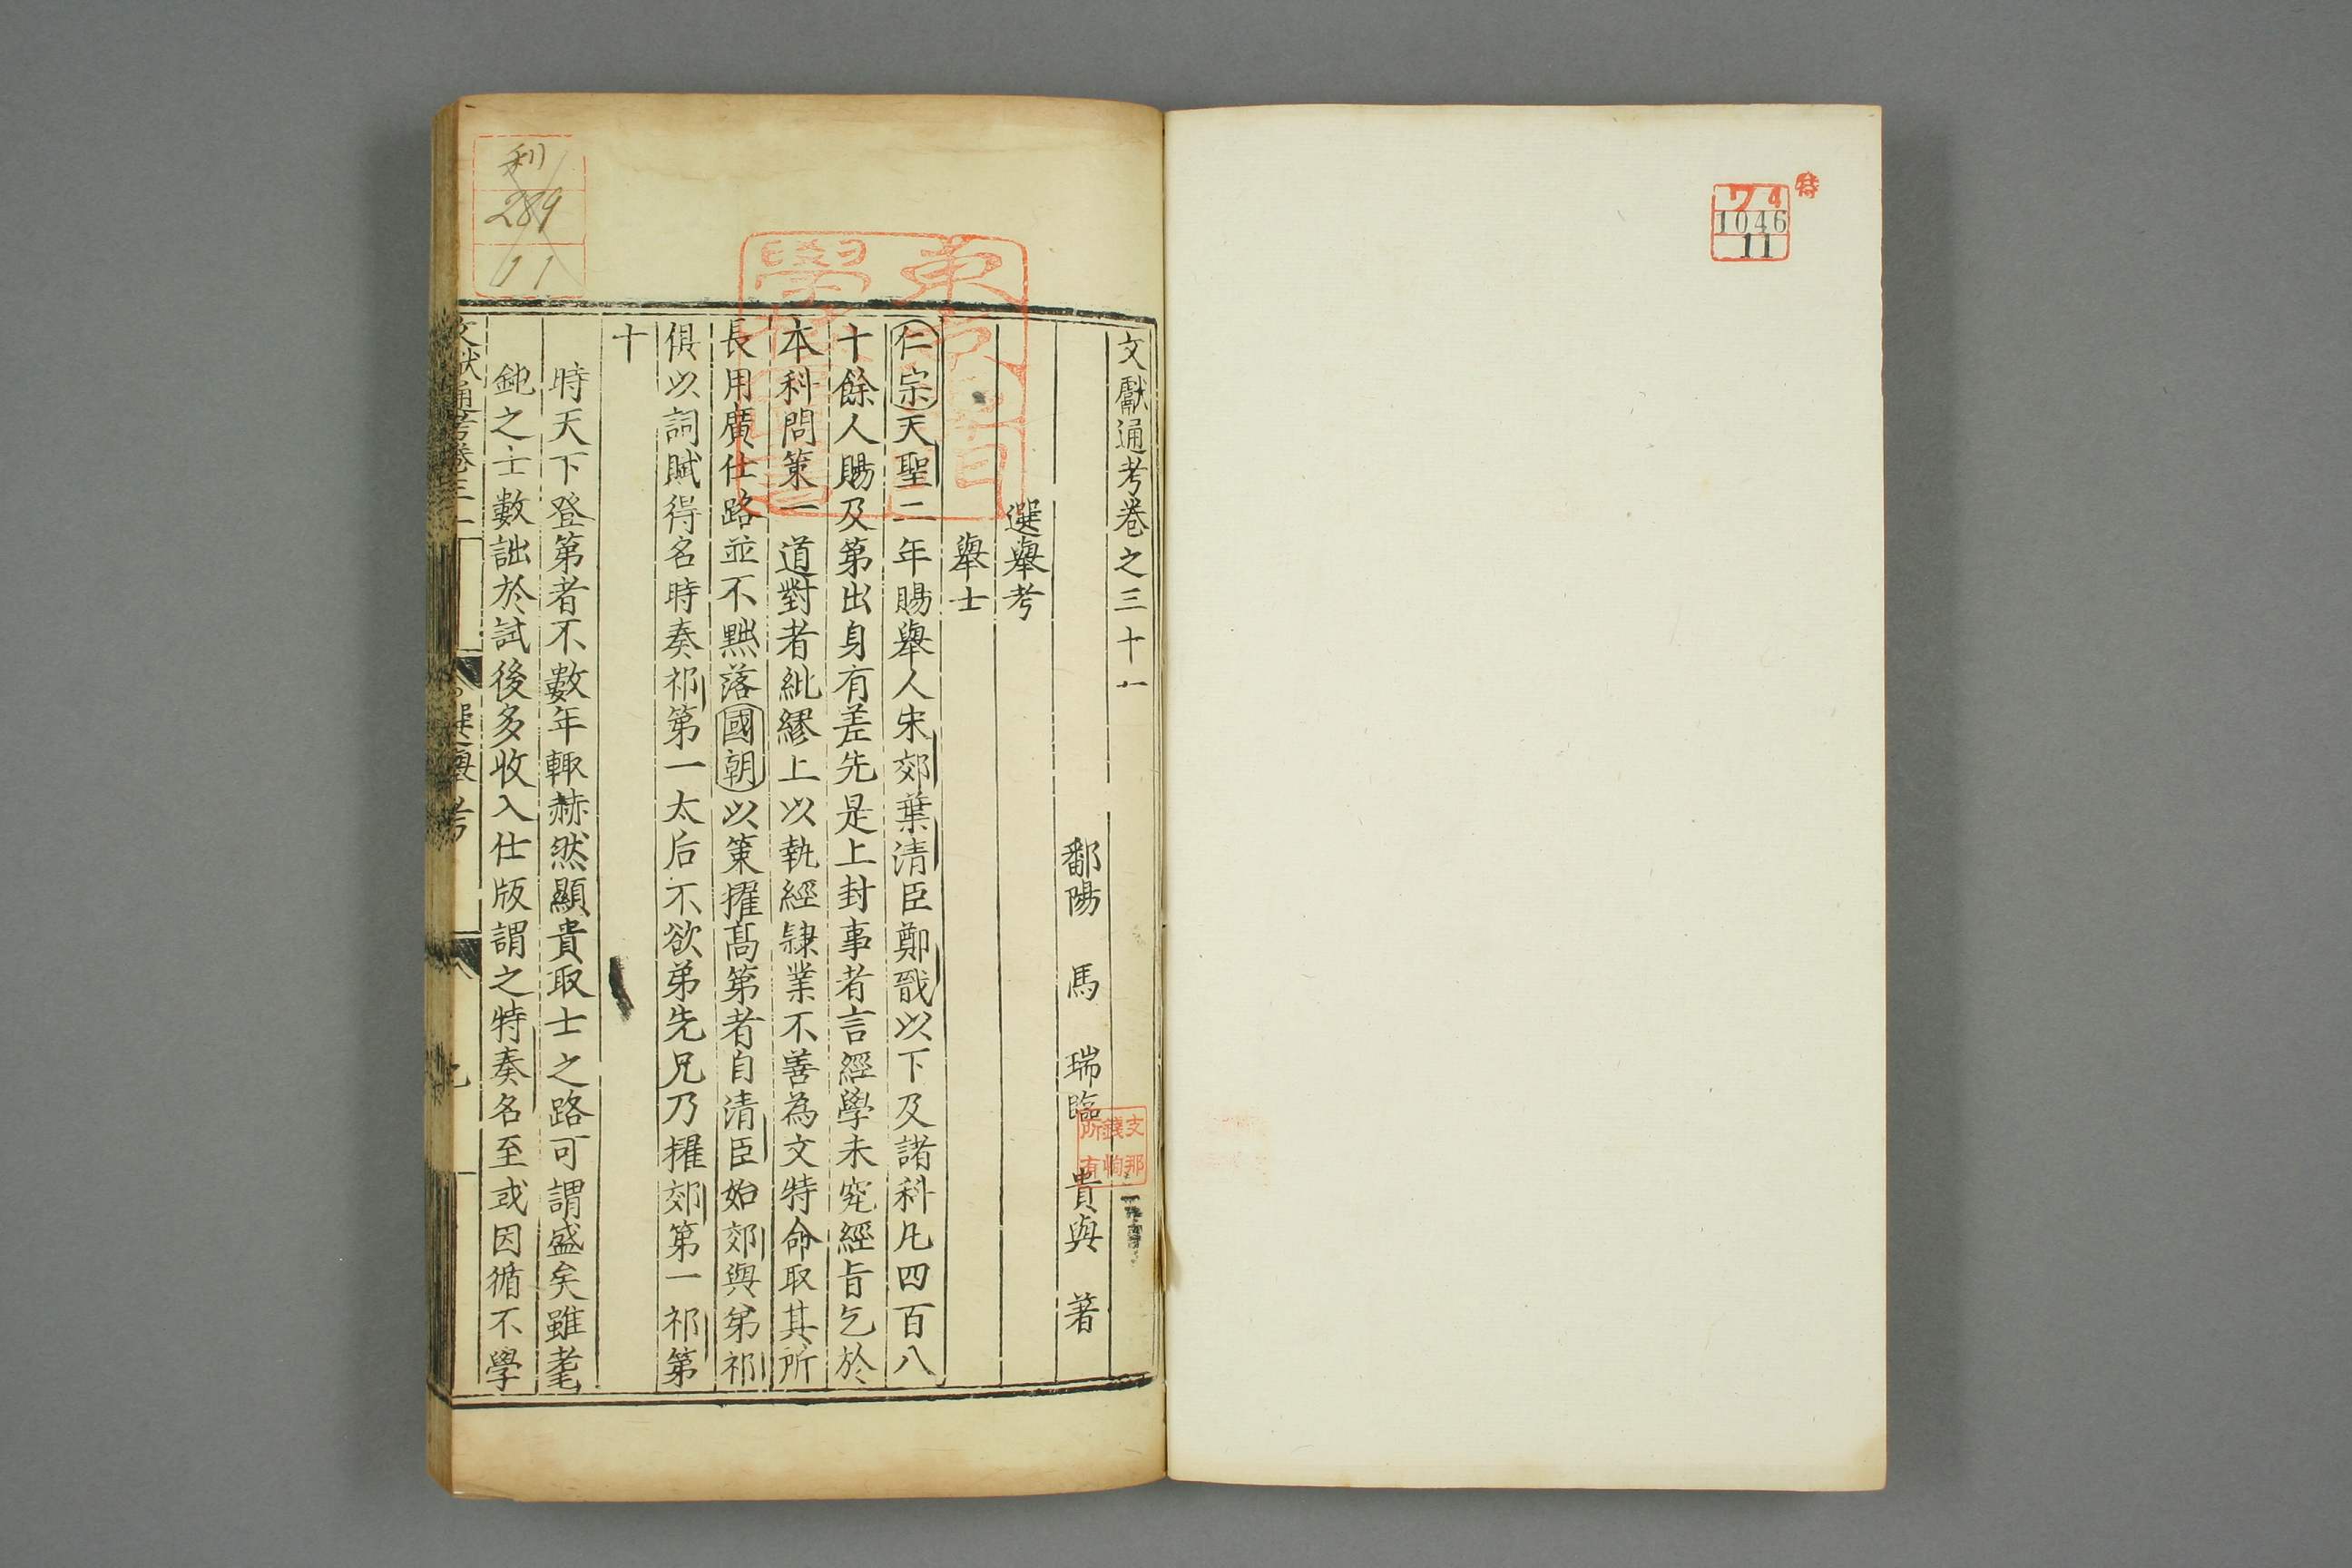 特
ワ4
1046
11
文獻通考卷之三十一
鄱陽 馬 瑞臨 貴與 著
選舉考
舉士
仁宗天聖二年賜舉人宋郊葉清臣鄭戩以下及諸科凡四百八
十餘人賜及第出身有差先是上封事者言經學未究經旨乞於
本科問策一道對者紕繆上以執經隸業不善為文特命取其所
長用廣仕路並不黜落國朝以策擢高第者自清臣始郊與弟祁
俱以詞賦得名時奏祁第一太后不欲弟先兄乃擢郊第一祁第
十
時天下登第者不數年輒赫然顯貴取士之路可謂盛矣雖耄
鈍之士數詘於試後多收入仕版謂之特奏名至或因循不學
文獻通考卷三十一
選舉考
支那
錢恂
所有
利
289
11